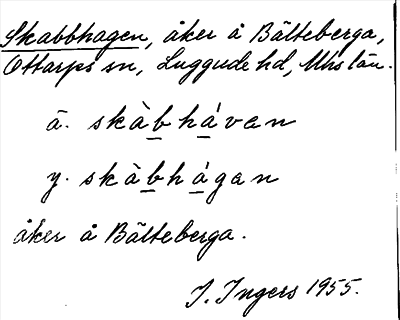 Skabbhagen, åker å Bälteberga,
Ottarps sn, Luggude hd, Mhs län.
ä. skàbhávan
y. skàbhágan
åker å Bälteberga.
I. Ingers 1955.